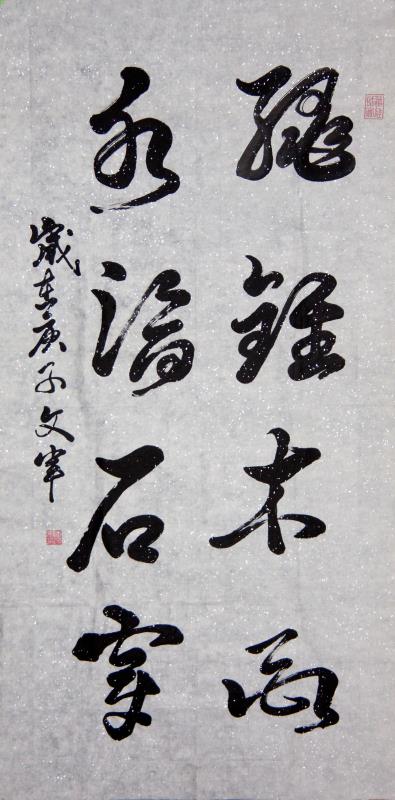 繩鋸木斷
水滴石穿
歲在庚子文軍